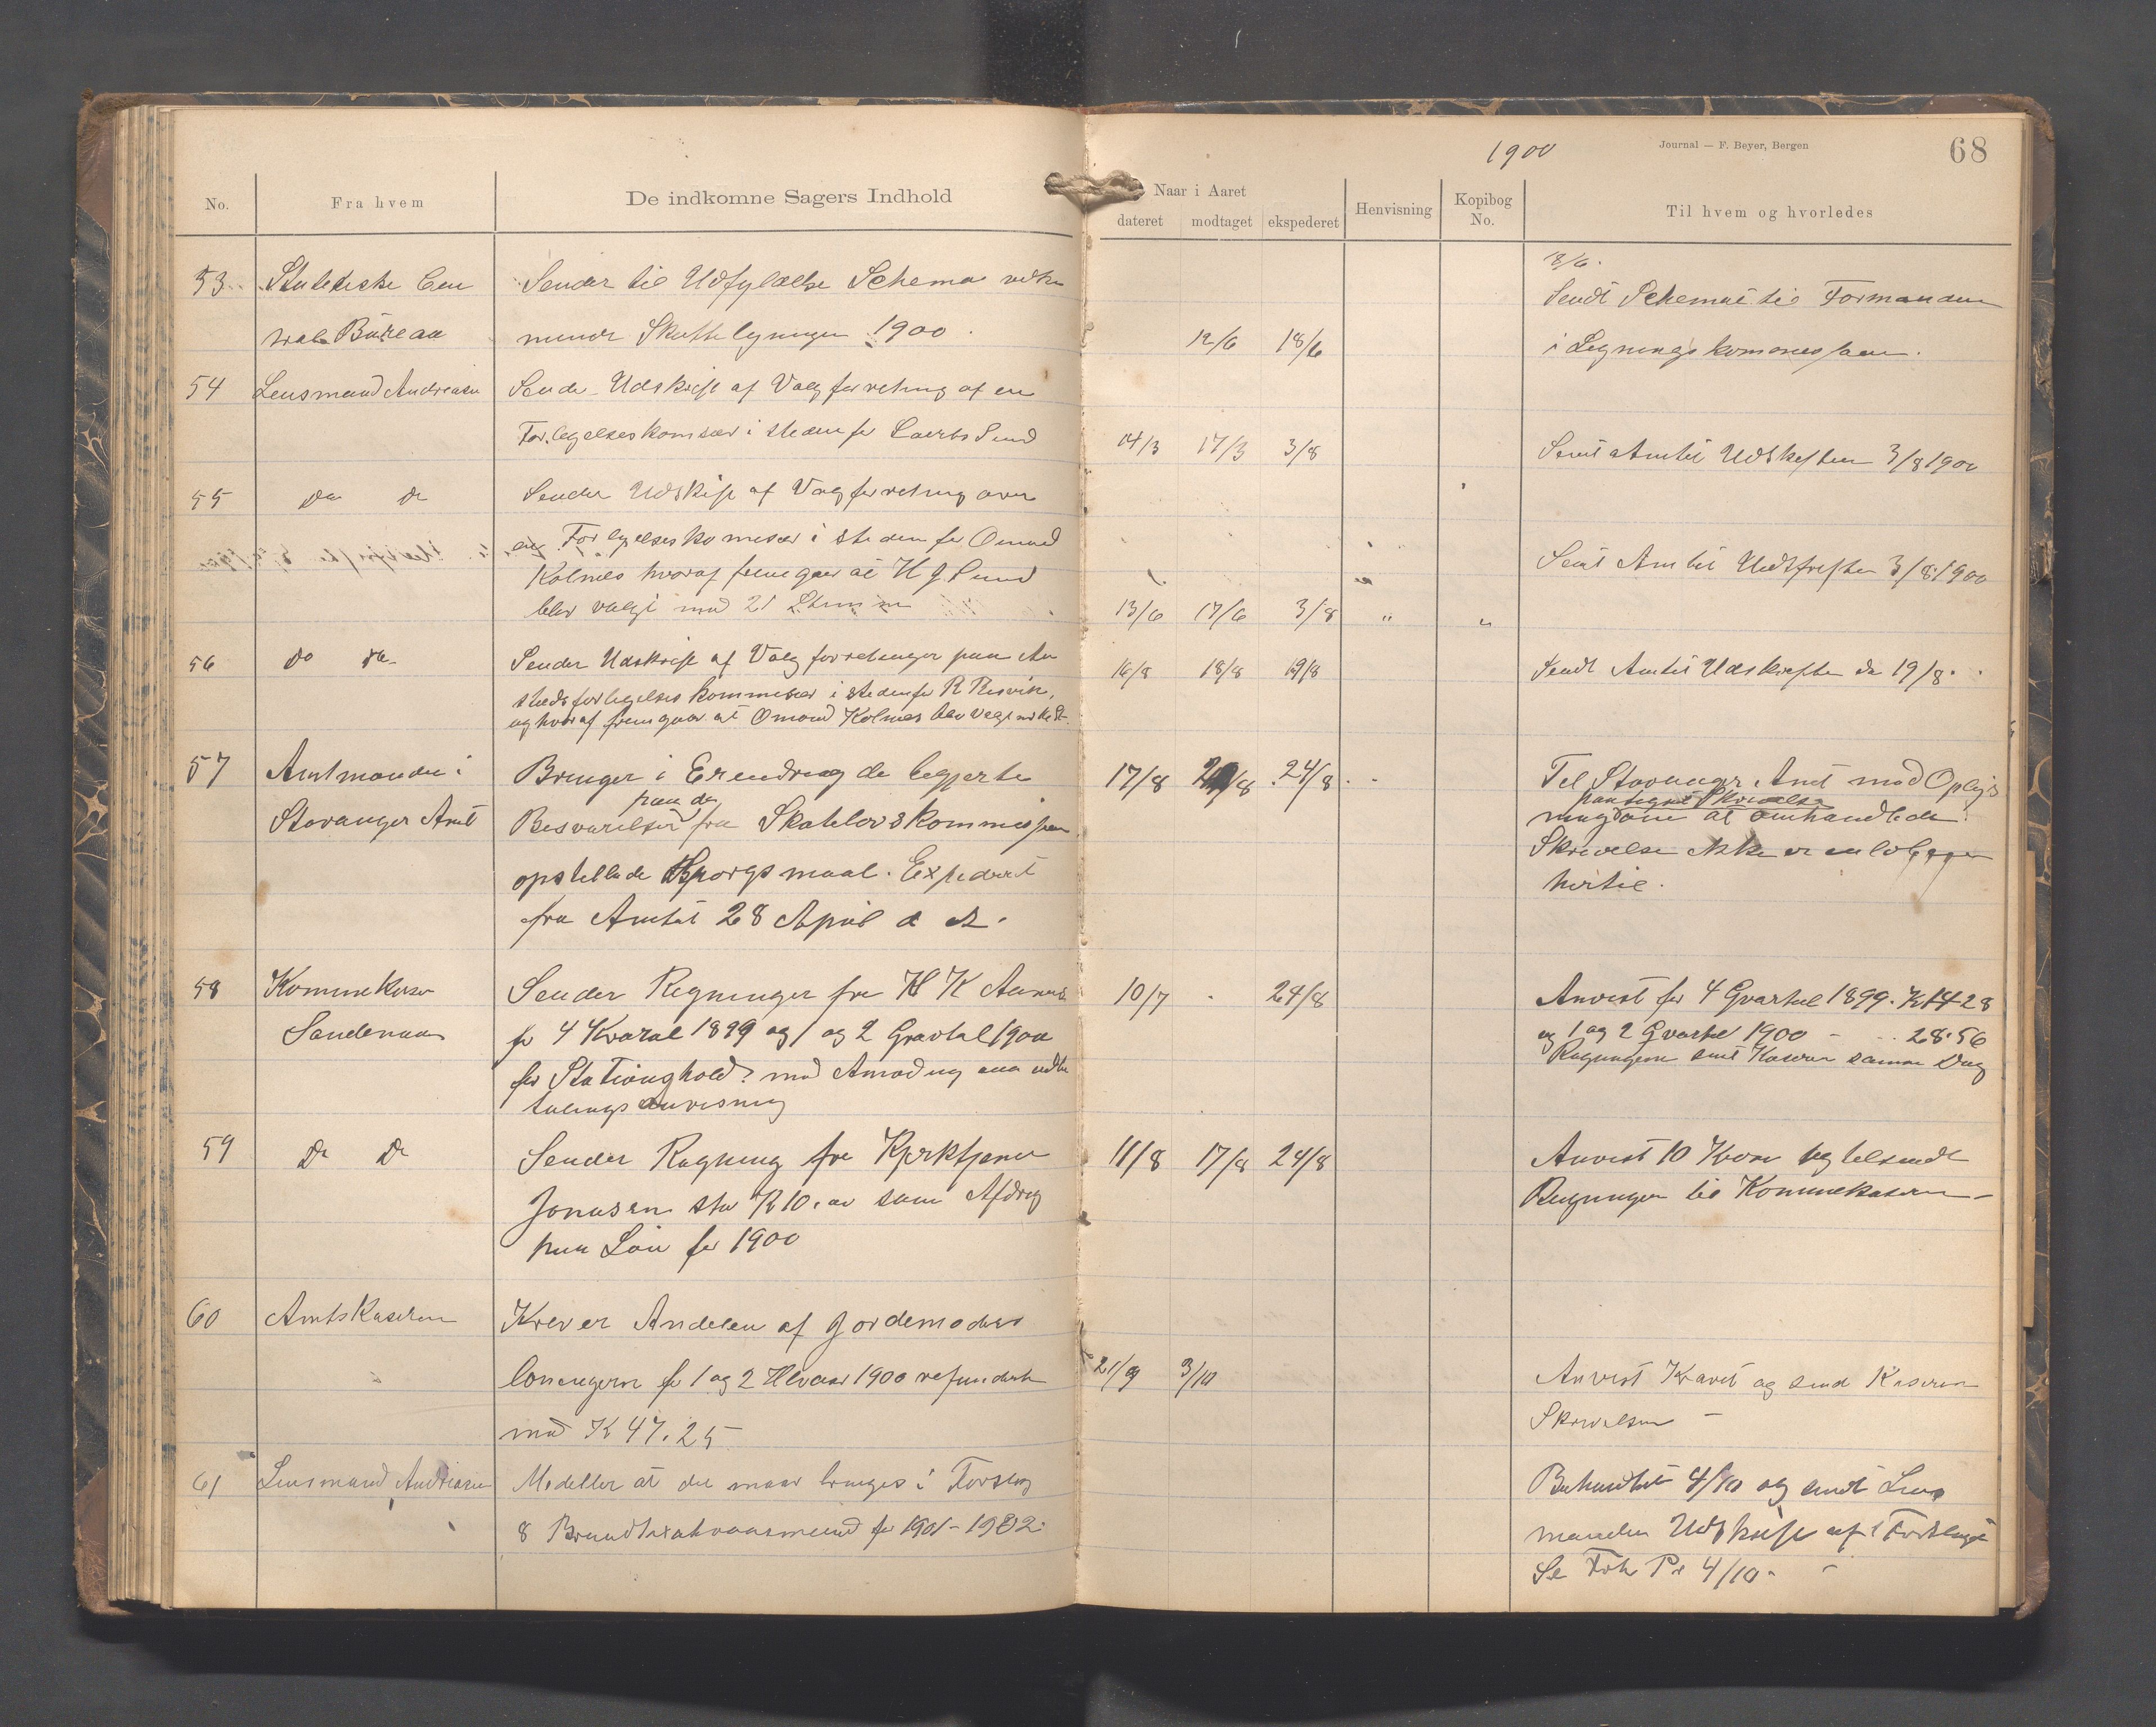 1900
Journal — F. Beyer, Bergen
68
No.
Fra hvem
De indkomne Sagers Indhold
Naar i Aaret
dateret
modtaget
ekspederet
Henvisning
Kopibog No.
Til hvem og hvorledes
53
Statistiske Cen
tral Büreau
Sender til Udfyldelse Schema vedkom
mende Skatteligningen 1900.
12/6 18/6
18/6.
Sendt Schemaet til Formanden
i Ligningskommissionen.
54
Lensmand Andreasen
Sender Udskrift af Valgforretning af en
Forligelseskomisær i stedenfor Laerts Sund
14/3 17/3 3/8
Sent Amtet Udskriften 3/8 1900
55
Do Do
Sender Udskrift af Valgforretning over
en Forligelseskomisær i stedenfor Omund
Kolnes hvoraf fremgaar at H J Sund
blev valgt med 21 Stemmer
13/6 17/6 3/8 " "
Sent Amtet Udskriften 3/8 1900
56
Do Do
Sender Udskrift af Valgforretninger paa An
steds forligelses kommissær i stedenfor R Risvik,
og hvoraf fremgaar at Omund Kolnes blev valgt
16/8 18/8 19/8
Sendt Amtet Udskriften da 19/8.
57
Amtmanden i
Stavanger Amt
Bringer i Erendring de begjerte
paa de
Besvarelser fra Skatelovskommissionen
opstillede Spørgsmaal. Expederet
fra Amtet 28 April d A.
17/8 24/8
Til Stavanger Amt med Oplys
paategnet Skrivelse
ning om at omhandlede
Skrivelse ikke er indløbet
hertil.
58
Kommunekaserer
Sandenaa
Sender Regninger fra H K Aanensen
for 4 Kvartal 1899 og 1 og 2 Qvartal 1900
for Stationshold med Anmodning om udbe
talings anvisning
10/7 24/8
Anvist for 4 Qvartal 1899. K 14 28
og 1 og 2 Qvartal 1900 - 28.56
Regningerne sent Kaserer samme Dag
59
Do Do
Sender Regning fra Kjrktjener
Jonasen stor K 10.00 som Afdrag
paa Løn for 1900
11/8 17/8 24/8
Anvist 10 Kroner og tilsendt
Regningen til Kommunekasereren -
60
Amtskasereren
Krever Andelen af Jordemoder
lønningerne for 1 og 2 Halvaar 1900 refunderet
med K 47.25
21/9 3/10
Anvist Kravet og send Kasereren
Skrivelsen -
61
Lensmand Andreasen
Medeller at der maa bringes i Forslag
8 Brandtaxatvaarmænd for 1901-1902.
Behandlet 4/10 og sendt Lens
manden Udskrift af Forslaget
Se Foh Pr 4/10.